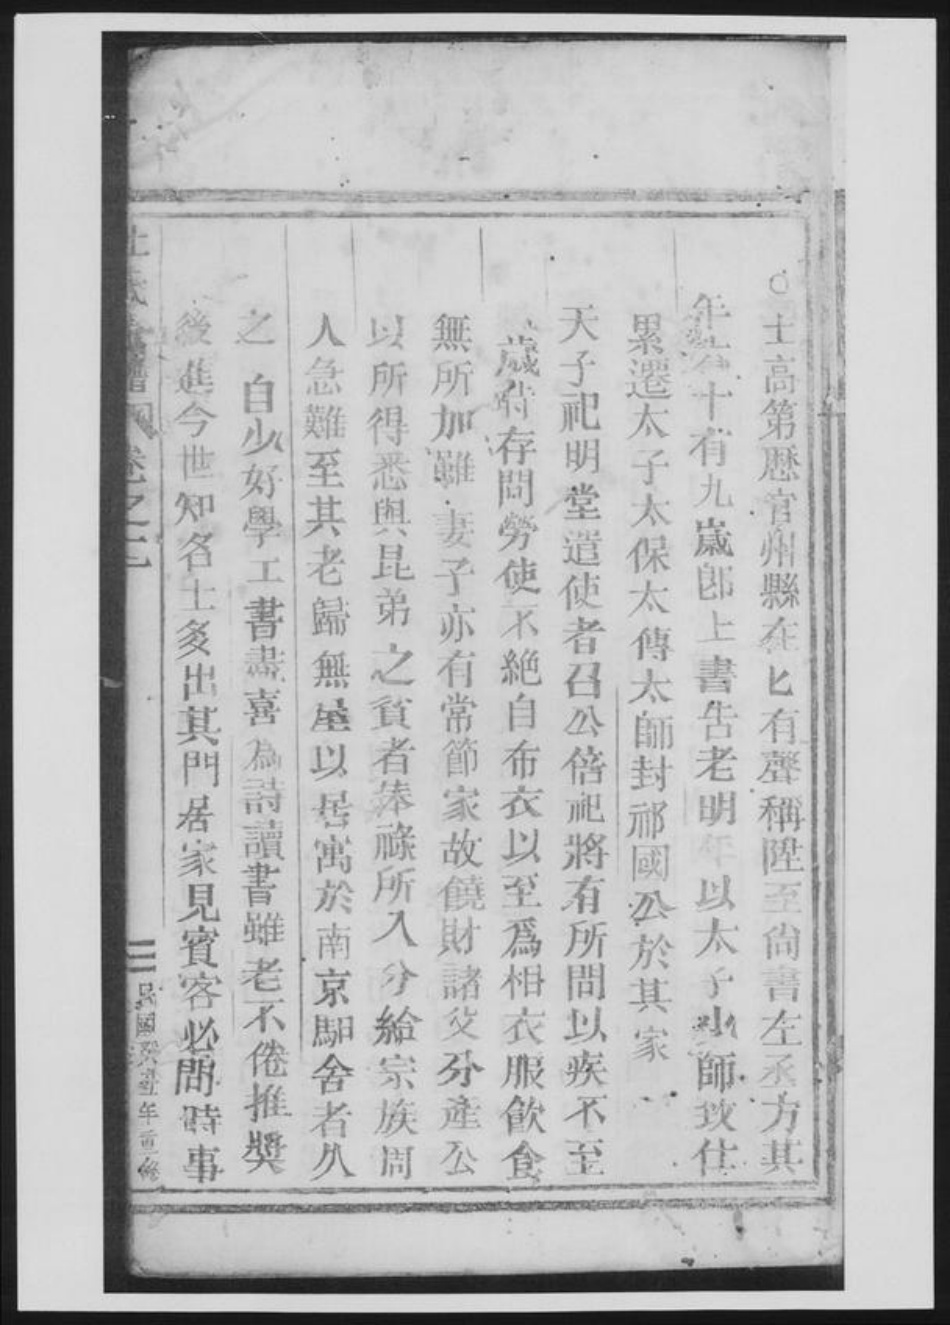 士高第歷官州縣在匕有聲稱陞至尙書左丞方其
年 十有九歲卽上書告老明年以太子少師致仕
累遷太子太保太傅太師封祁國公於其家
天子祀明堂遣使者召公倍祀將有所問以疾不至
歲時存問勞使不絕自布衣以至爲相衣服飮食
無所加雖妻子亦有常節家故饒財諸父分產公
以所得悉與昆弟之貧者俸祿所入分給宗族周
人急難至其老歸無屋以居寓於南京馹舍者久
之 自少好學工書畫喜為詩讀書雖老不倦推奬
後進今世知名士多出其門居家見賓客必問時事
杜氏 譜 卷之
二 民國癸丑年重修